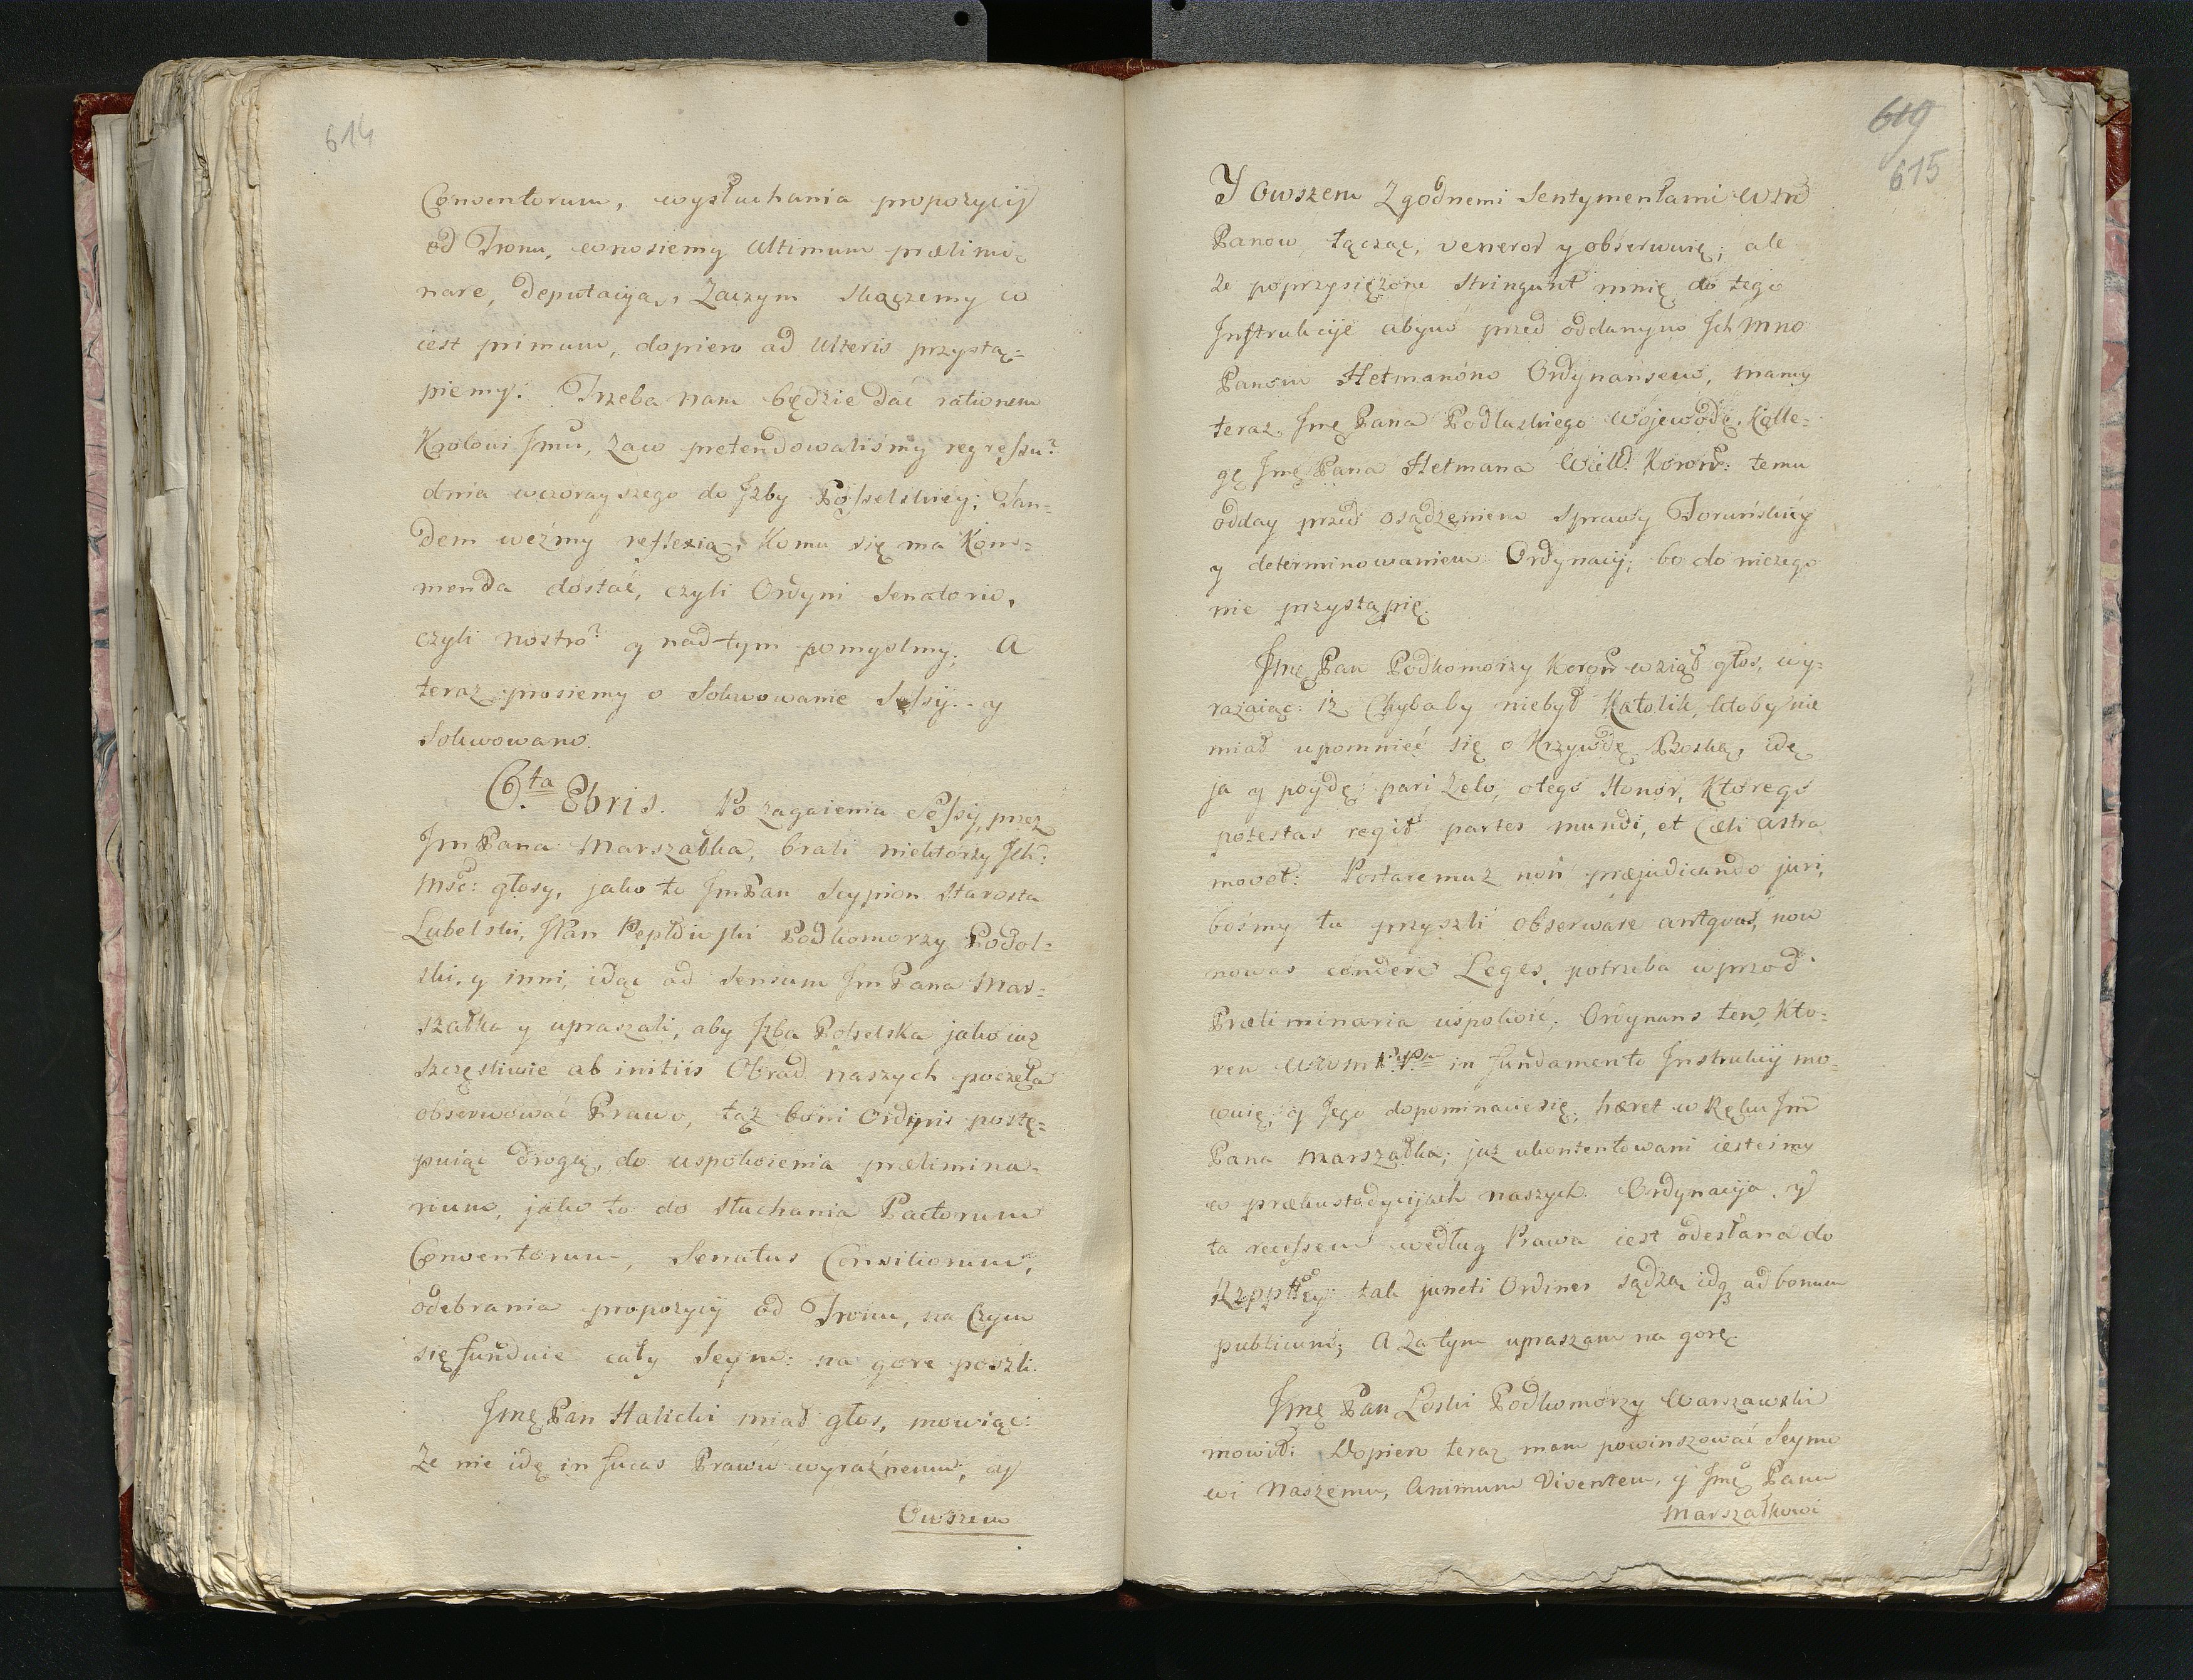 614
Conventorum, wysłuchania propozycij
od Tronu, wnosiemy ultimum prælimi=
nare, deputacya, Zaczym skączemy co
iest primum, dopiero ad ulteris przystą=
piemy: Trzeba nam będzie dać rationem
Krolowi Jmu, zaco pretendowalismy regressu?
dnia wczorayszego do Jzby Posselskiey; Tan=
dem weźmy reflexią, Komu się ma Kom=
menda dostać, czyli Ordyni Senatorio,
czyli nostro? y nad tym pomyslmy; A
teraz prosiemy o Solwowanie Sessij - y
Solwowano.
6ta 8bris. Po zagaieniu Sessij, przez
JmPana Marszałka, brali niektórzy Ich:
Msć: głosy, jako to JmPan Scypion Starosta
Lubelski, JPan Pepłowski Podkomorzy Podol=
ski, y inni, idąc ad sensum JmPana Mar=
szałka y upraszali, aby Jzba Posselska jako iuż
szczęsliwie ab initiis Obrad naszych poczęła
obserwować Prawo, tąż boni Ordinis postę=
puiąc drogą, do uspokoienia prælimina=
rium, jako to do słuchania Pactorum
Conventorum, Senatus Consiliorum,
odebrania propozycij od Tronu, na Czym
się funduie cały Seym: na gore poszli.
Jmę Pan Halicki miał głos, mowiąc:
Że nie idę in fucas Prawu wyraźnemu, ay
Owszem
619
615
Y Owszem Zgodnemi Sentymentami WM
Panow łącząc, veneror y obserwuię; ale
że poprzysiężone stringunt mnię do tego
Jnstrukcije abym przed oddanym Ich Mno
Panom Hetmanóno Ordynansem, mamy
teraz Jmę Pana Podlaskiego Wojewodę, Kolle=
gę Jmę Pana Hetmana Wielk. Koron: temu
odday przed osądzeniem Sprawy Toruńskiey
y determinowaniem Ordynacij; bo do niczego
nie przystąpię.
Jmę Pan Podkomorzy Koron wziął głos, wy=
razaiąc: iż Chybaby niebył Katolik, ktoby nie
miał upomnieć się o Krzywdę Boską, idę
ja y poydę pari Zelo, otego Honor, Ktorego
potestas regit partes mundi, et Cæli astra
movet: Postaremuż non præjudicando juri,
bośmy tu przyszli observare antquas, non
novas condere Leges, potrzeba wprzod
Præliminaria uspokoić; Ordynans ten, Kto=
ren in fundamento Jnstrukcij mo=
wuię, y Jego dopominacie się, hæret w Ręku Jm
Pana Marszałka; już ukontentowani iestesmy
w prækustodycijach naszych. Ordynacija, y
ta recessem według Prawa iest odesłana do
Rzppltey: tak juncti Ordines sądzą idą ad bonum
publicum; A Zatym upraszam na gorę.
Jmę Pan Loski Podkomorzy Warszawski
mowił: Dopiero teraz mam powinszować Seymo
wi Naszemu, Animum Viventem, y Jmę Panu
Marszałkowi